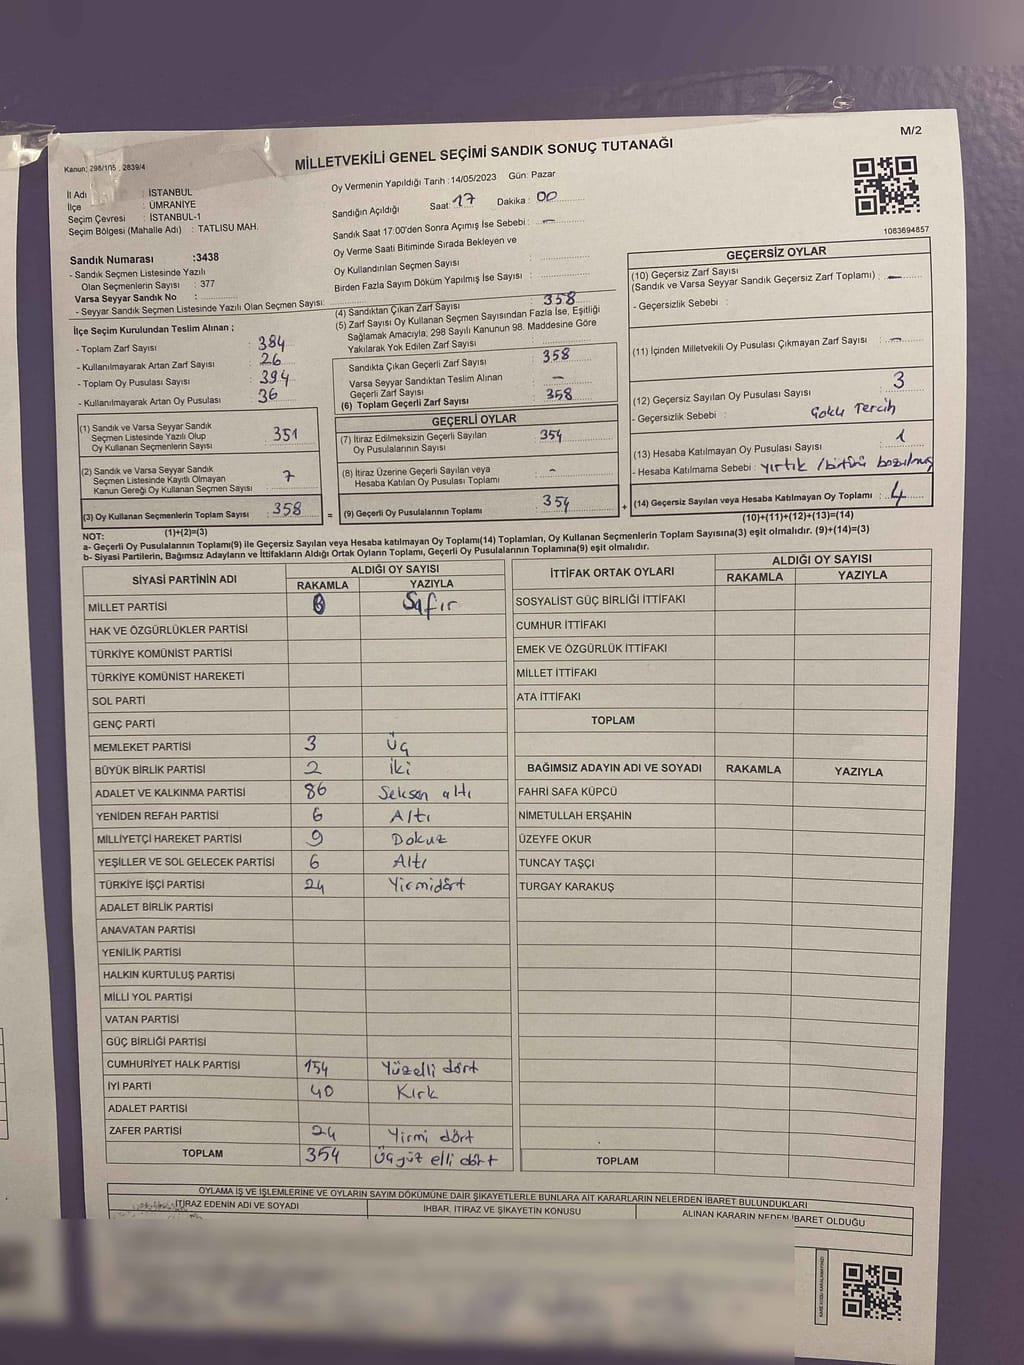 M/2
Kanun: 298/105 . 2839/4
MİLLETVEKİLİ GENEL SEÇİMİ SANDIK SONUÇ TUTANAĞI
İl Adı : İSTANBUL
İlçe : ÜMRANİYE
Seçim Çevresi : İSTANBUL-1
Seçim Bölgesi (Mahalle Adı) : TATLISU MAH.
Sandık Numarası :3438
- Sandık Seçmen Listesinde Yazılı
Olan Seçmenlerin Sayısı : 377
Varsa Seyyar Sandık No :
- Seyyar Sandık Seçmen Listesinde Yazılı Olan Seçmen Sayısı:
Oy Vermenin Yapıldığı Tarih : 14/05/2023 Gün: Pazar
Sandığın Açıldığı Saat: 17 Dakika: 00
Sandık Saat 17:00'den Sonra Açımış İse Sebebi : —
Oy Verme Saati Bitiminde Sırada Bekleyen ve
Oy Kullandırılan Seçmen Sayısı :
Birden Fazla Sayım Döküm Yapılmış İse Sayısı :
1083694857
İlçe Seçim Kurulundan Teslim Alınan ;
- Toplam Zarf Sayısı : 384
- Kullanılmayarak Artan Zarf Sayısı : 26
- Toplam Oy Pusulası Sayısı : 394
- Kullanılmayarak Artan Oy Pusulası : 36
(1) Sandık ve Varsa Seyyar Sandık
Seçmen Listesinde Yazılı Olup
Oy Kullanan Seçmenlerin Sayısı : 351
(2) Sandık ve Varsa Seyyar Sandık
Seçmen Listesinde Kayıtlı Olmayan
Kanun Gereği Oy Kullanan Seçmen Sayısı : 7
(3) Oy Kullanan Seçmenlerin Toplam Sayısı : 358
(1)+(2)=(3)
(4) Sandıktan Çıkan Zarf Sayısı : 358
(5) Zarf Sayısı Oy Kullanan Seçmen Sayısından Fazla İse, Eşitliği
Sağlamak Amacıyla, 298 Sayılı Kanunun 98. Maddesine Göre
Yakılarak Yok Edilen Zarf Sayısı :
Sandıkta Çıkan Geçerli Zarf Sayısı : 358
Varsa Seyyar Sandıktan Teslim Alınan
Geçerli Zarf Sayısı : —
(6) Toplam Geçerli Zarf Sayısı : 358
GEÇERLİ OYLAR
(7) İtiraz Edilmeksizin Geçerli Sayılan
Oy Pusulalarının Sayısı : 354
(8) İtiraz Üzerine Geçerli Sayılan veya
Hesaba Katılan Oy Pusulası Toplamı : -
= (9) Geçerli Oy Pusulalarının Toplamı : 354 +
GEÇERSİZ OYLAR
(10) Geçersiz Zarf Sayısı
(Sandık ve Varsa Seyyar Sandık Geçersiz Zarf Toplamı) : —
- Geçersizlik Sebebi :
(11) İçinden Milletvekili Oy Pusulası Çıkmayan Zarf Sayısı : —
(12) Geçersiz Sayılan Oy Pusulası Sayısı : 3
- Geçersizlik Sebebi : Çoklu Tercih
(13) Hesaba Katılmayan Oy Pusulası Sayısı : 1
- Hesaba Katılmama Sebebi : yırtık /bütünü bozulmuş
(14) Geçersiz Sayılan veya Hesaba Katılmayan Oy Toplamı : 4
(10)+(11)+(12)+(13)=(14)
NOT:
a- Geçerli Oy Pusulalarının Toplamı(9) ile Geçersiz Sayılan veya Hesaba katılmayan Oy Toplamı(14) Toplamları, Oy Kullanan Seçmenlerin Toplam Sayısına(3) eşit olmalıdır. (9)+(14)=(3)
b- Siyasi Partilerin, Bağımsız Adayların ve İttifakların Aldığı Ortak Oyların Toplamı, Geçerli Oy Pusulalarının Toplamına(9) eşit olmalıdır.
SİYASİ PARTİNİN ADI ALDIĞI OY SAYISI
RAKAMLA YAZIYLA
MİLLET PARTİSİ 0 Safır
HAK VE ÖZGÜRLÜKLER PARTİSİ
TÜRKİYE KOMÜNİST PARTİSİ
TÜRKİYE KOMÜNİST HAREKETİ
SOL PARTİ
GENÇ PARTİ
MEMLEKET PARTİSİ 3 Üç
BÜYÜK BİRLİK PARTİSİ 2 İki
ADALET VE KALKINMA PARTİSİ 86 Seksen altı
YENİDEN REFAH PARTİSİ 6 Altı
MİLLİYETÇİ HAREKET PARTİSİ 9 Dokuz
YEŞİLLER VE SOL GELECEK PARTİSİ 6 Altı
TÜRKİYE İŞÇİ PARTİSİ 24 Yirmidört
ADALET BİRLİK PARTİSİ
ANAVATAN PARTİSİ
YENİLİK PARTİSİ
HALKIN KURTULUŞ PARTİSİ
MİLLİ YOL PARTİSİ
VATAN PARTİSİ
GÜÇ BİRLİĞİ PARTİSİ
CUMHURİYET HALK PARTİSİ 154 Yüzelli dört
İYİ PARTİ 40 Kırk
ADALET PARTİSİ
ZAFER PARTİSİ 24 Yirmi dört
TOPLAM 354 Üçyüz elli dört
İTTİFAK ORTAK OYLARI ALDIĞI OY SAYISI
RAKAMLA YAZIYLA
SOSYALİST GÜÇ BİRLİĞİ İTTİFAKI
CUMHUR İTTİFAKI
EMEK VE ÖZGÜRLÜK İTTİFAKI
MİLLET İTTİFAKI
ATA İTTİFAKI
TOPLAM
BAĞIMSIZ ADAYIN ADI VE SOYADI RAKAMLA YAZIYLA
FAHRİ SAFA KÜPCÜ
NİMETULLAH ERŞAHİN
ÜZEYFE OKUR
TUNCAY TAŞÇI
TURGAY KARAKUŞ
TOPLAM
OYLAMA İŞ VE İŞLEMLERİNE VE OYLARIN SAYIM DÖKÜMÜNE DAİR ŞİKAYETLERLE BUNLARA AİT KARARLARIN NELERDEN İBARET BULUNDUKLARI
İTİRAZ EDENİN ADI VE SOYADI İHBAR, İTİRAZ VE ŞİKAYETİN KONUSU ALINAN KARARIN NEDEN İBARET OLDUĞU